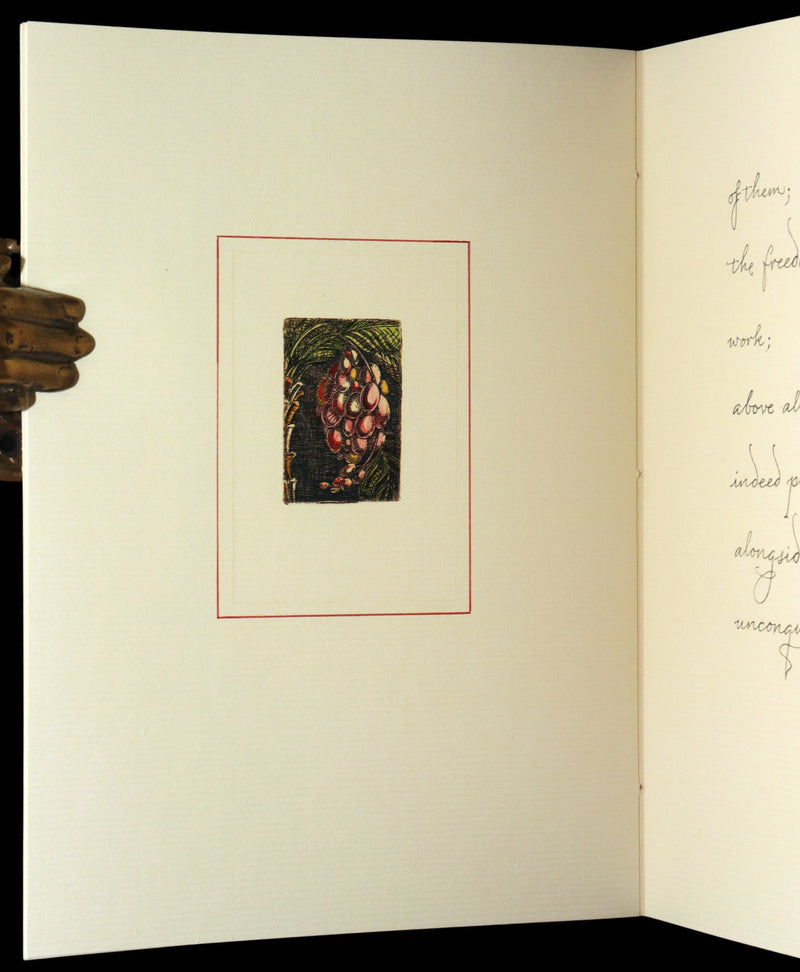 of them;
the freed
work;
above al
indeed p
alongsid
unconqu